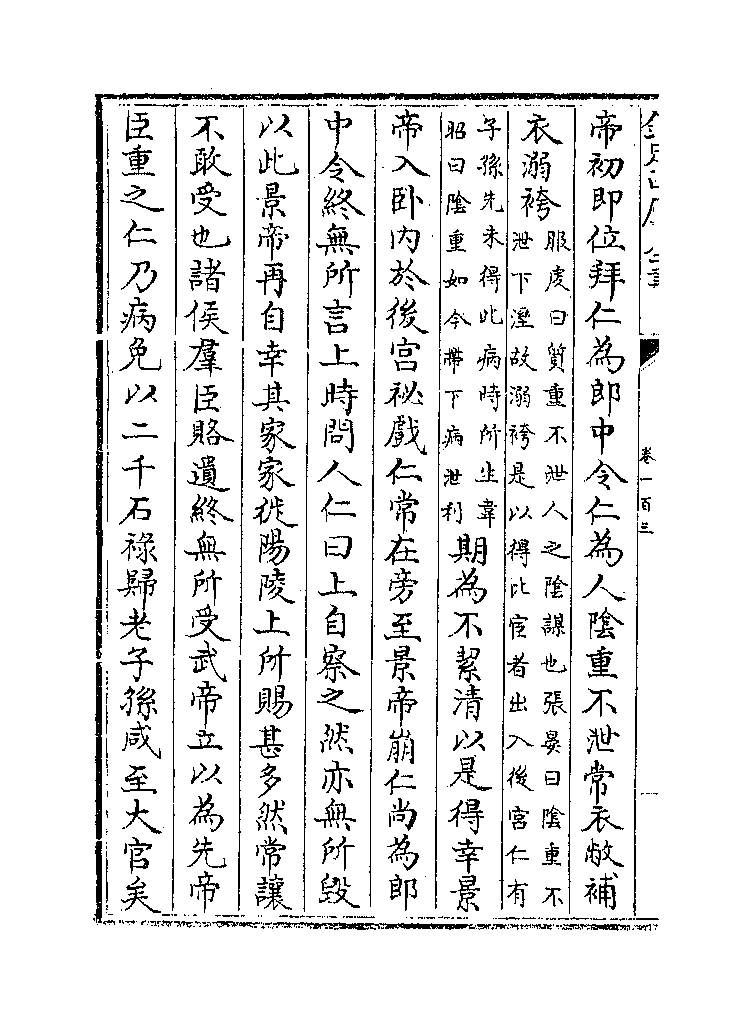 欽定四庫全書
卷一百三
帝初即位拜仁為郎中令仁為人隂重不泄常衣敝補
衣溺袴
服虔曰質重不泄人之隂謀也張晏曰隂重不
泄下溼故溺袴是以得比宦者出入後宮仁有
子孫先未得此病時所生韋
昭曰隂重如今帶下病泄利
期為不絜清以是得幸景
帝入卧内於後宮祕戲仁常在旁至景帝崩仁尚為郎
中令終無所言上時問人仁曰上自察之然亦無所毀
以此景帝再自幸其家家徙陽陵上所賜甚多然常讓
不敢受也諸侯羣臣賂遺終無所受武帝立以為先帝
臣重之仁乃病免以二千石祿歸老子孫咸至大官矣